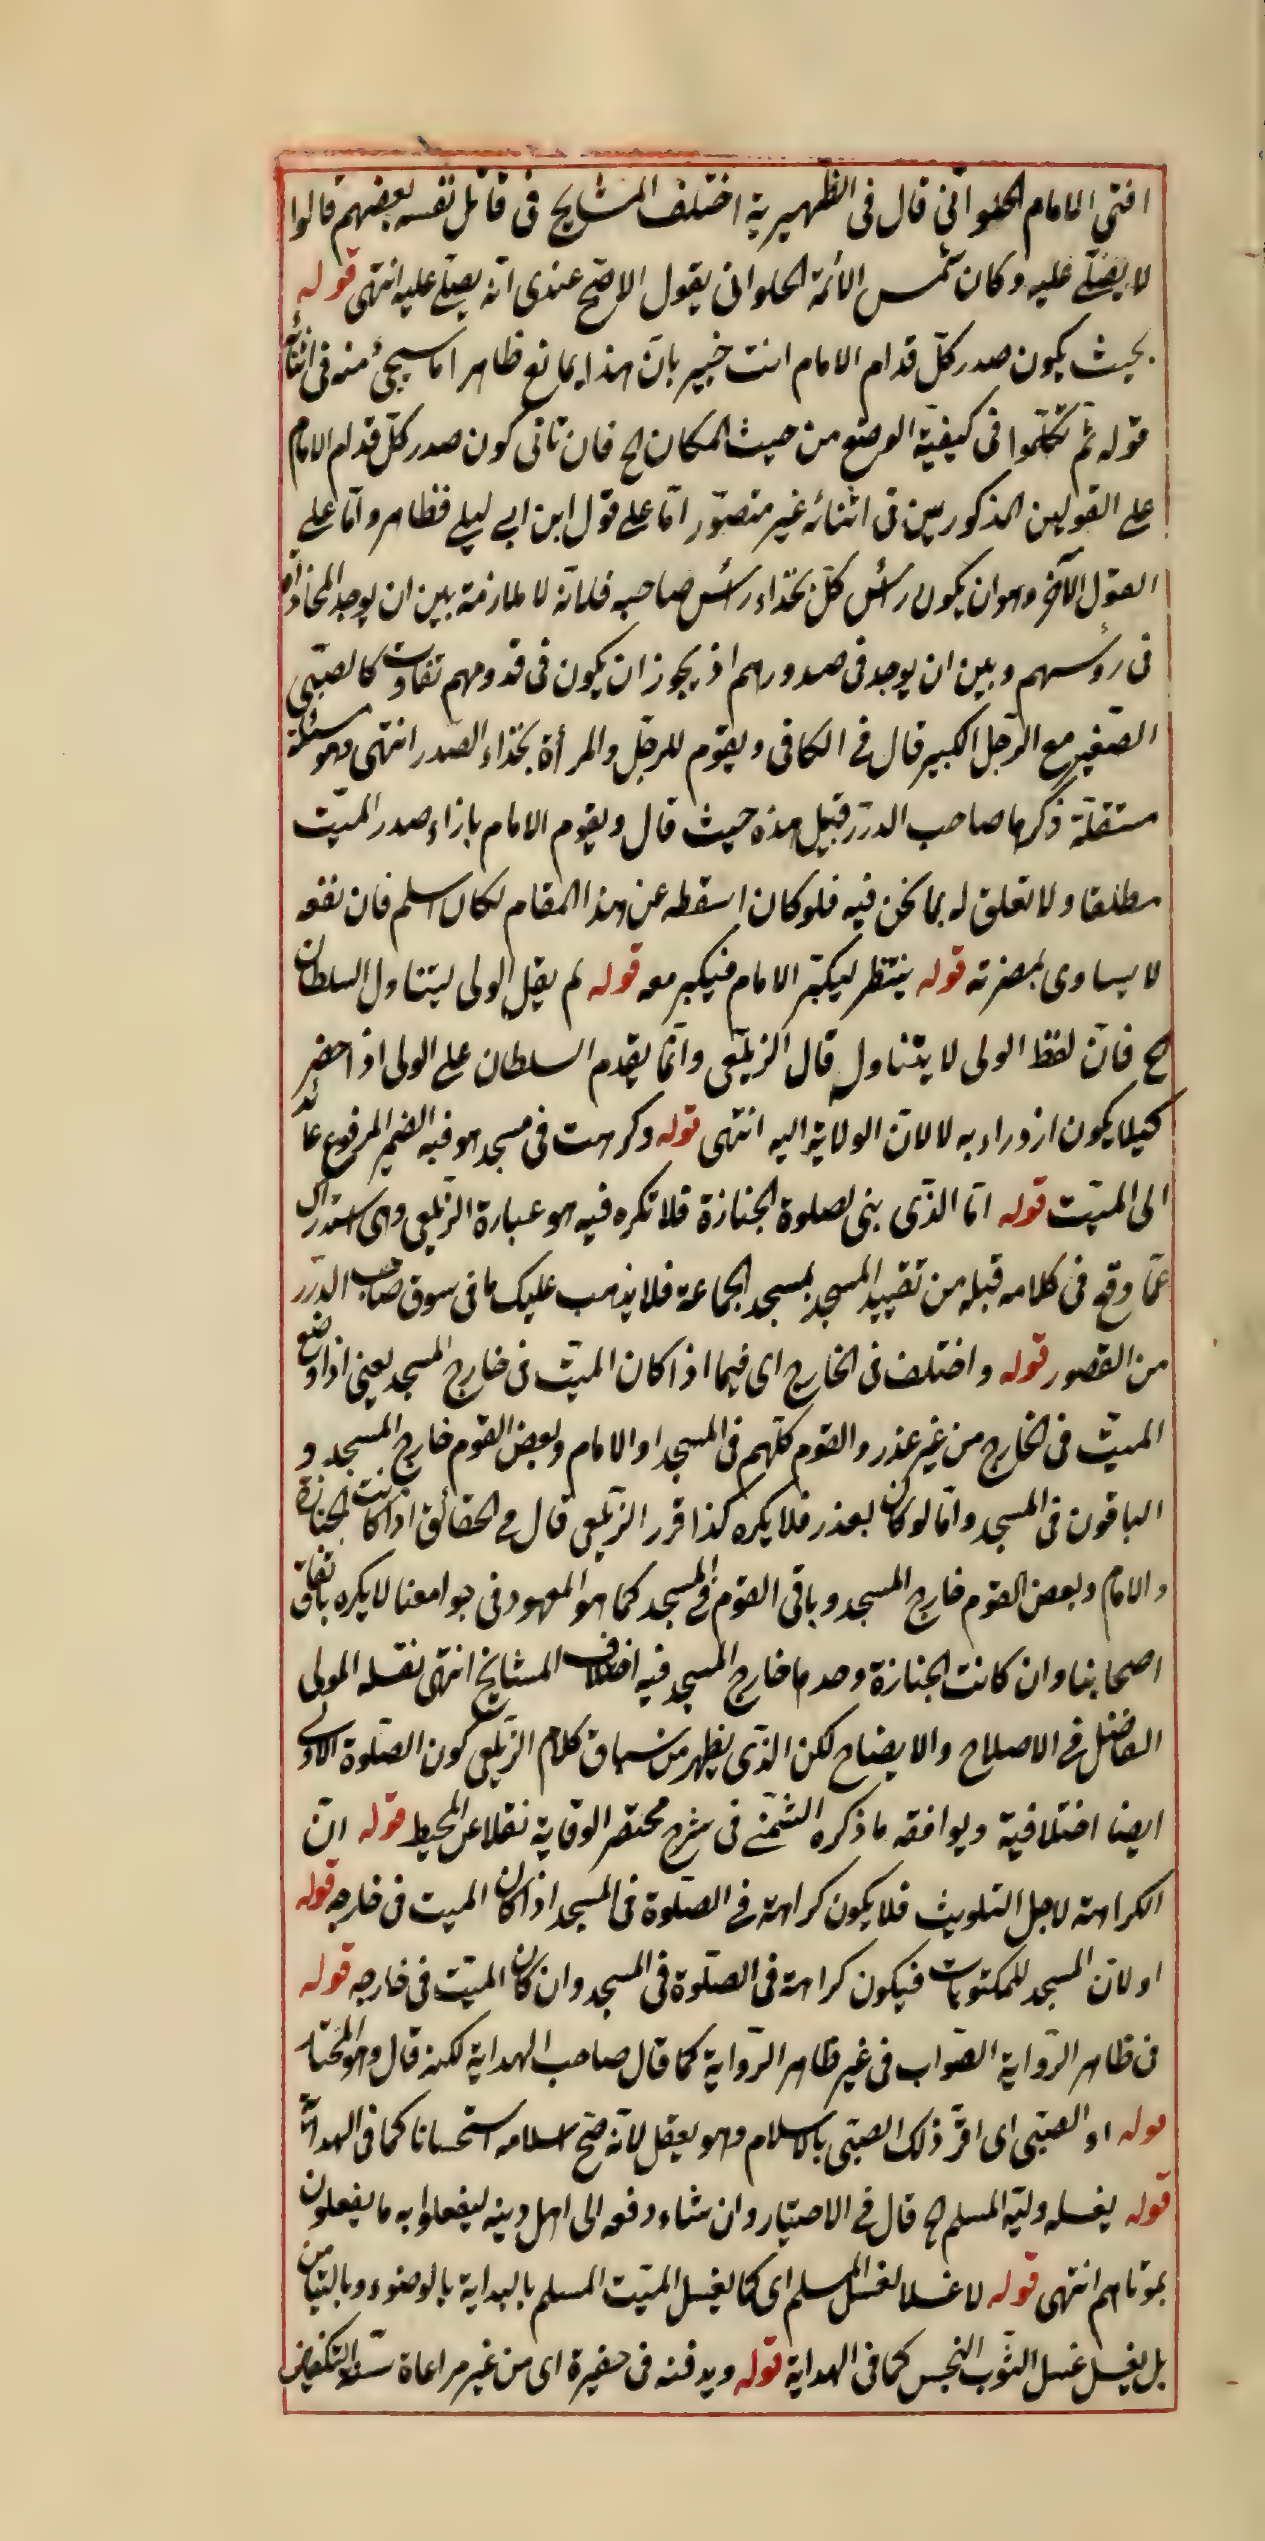 افتى الامام الحلوانى قال فى الظهيرية اختلف المشايخ فى قاتل نفسه بعضهم قالوا
لا يصلّى عليه وكان شمس الأئمة الحلوانى يقول الاصح عندى انه يصلّى عليه انتهى قوله
بحيث يكون صدر كلّ قدام الامام انت خبير بانّ هذا يمانع ظاهرا ما سيجئ منه فى اثناء
قوله ثم تكلّموا فى كيفيّة الوضع من حيث المكان الخ فان تاتى كون صدر كلّ قدام الامام
على القولين المذكورين فى اثنائه غير متصوّر امّا على قول ابن ابى ليلى فظاهر وامّا على
القول الآخر وهو ان يكون رأس كلّ بحذاء رأس صاحبه فلانّه لا ملازمة بين ان يوجد المحاذاة
فى رؤسهم وبين ان يوجد فى صدورهم اذ يجوز ان يكون فى قدومهم تفاوت كالصبّى
الصّغير مع الرّجل الكبير قال فى الكافى ويقوم للرجل والمرأة بحذاء الصدر انتهى وهو مسئلة
مستقلّة ذكرها صاحب الدرر قبيل هذه حيث قال ويقوم الامام بازاء صدر الميّت
مطلقا ولا تعلق له بما نحن فيه فلو كان اسقطه عن هذا المقام لكان اسلم فان نفعه
لا يساوى بمضرته قوله ينتظر ليكبّر الامام فيكبر معه قوله لم يقل الولى ليتناول السلطان
الخ فانّ لفظ الولى لا يتناول قال الزيلعى وانّما يقدم السلطان على الولى اذا حضر
كيلا يكون ازدراء به لا لانّ الولاية اليه انتهى قوله وكرهت فى مسجد هو فيه الضمير المرفوع عائد
الى الميّت قوله امّا الذّى بنى لصلوة الجنازة فلا تكره فيه هو عبارة الزّيلعى وهى استدراك
عمّا وقع فى كلامه قبله من تقييد المسجد بمسجد الجماعة فلا يذهب عليك ما فى سوق صاحب الدرر
من القصور قوله واختلف فى الخارج اى فيما اذا كان الميّت فى خارج المسجد يعنى اذا وضع
الميّت فى الخارج من غير عذر والقوم كلّهم فى المسجد او الامام وبعض القوم خارج المسجد و
الباقون فى المسجد وامّا لو كان بعذر فلا يكره كذا قرر الزّيلعى قال فى الحقائق اذا كانت الجنازة
والامام وبعض القوم خارج المسجد وباقى القوم فى المسجد كما هو المعهود فى جوامعنا لا يكره باتفاق
اصحابنا وان كانت الجنازة وحدها خارج المسجد فيه اختلاف المشايخ انتهى نقله المولى
الفاضل فى الاصلاح والايضاح لكن الذّى يظهر من سياق كلام الزّيلعى كون الصّلوة الاولى
ايضا اختلافية ويوافقه ما ذكره الشّمنّى فى شرح مختصر الوقاية نقلا عن المحيط قوله انّ
الكراهة لاجل التلويث فلا يكون كراهة فى الصّلوة فى المسجد اذا كان الميت فى خارجه قوله
او لانّ المسجد للمكتوبات فيكون كراهة فى الصّلوة فى المسجد وان كان الميّت فى خارجه قوله
فى ظاهر الرّواية الصّواب فى غير ظاهر الرّواية كما قال صاحب الهداية لكنه قال وهو المختار
قوله او الصّبّى اى اقرّ ذلك الصبّى بالاسلام وهو يعقل لانّه صحّ اسلامه استحسانا كما فى الهداية
قوله يغسله وليّه المسلم الخ قال فى الاختيار وان شاء دفعه الى اهل دينه ليفعلوا به ما يفعلون
بموتاهم انتهى قوله لا غسلا لغسل المسلم اى كما يغسل الميّت المسلم بالبداية بالوضوء وبالتيامن
بل يغسل غسل الثّوب النّجس كما فى الهداية قوله ويدفنه فى حفيرة اى من غير مراعاة سنّة التكفين